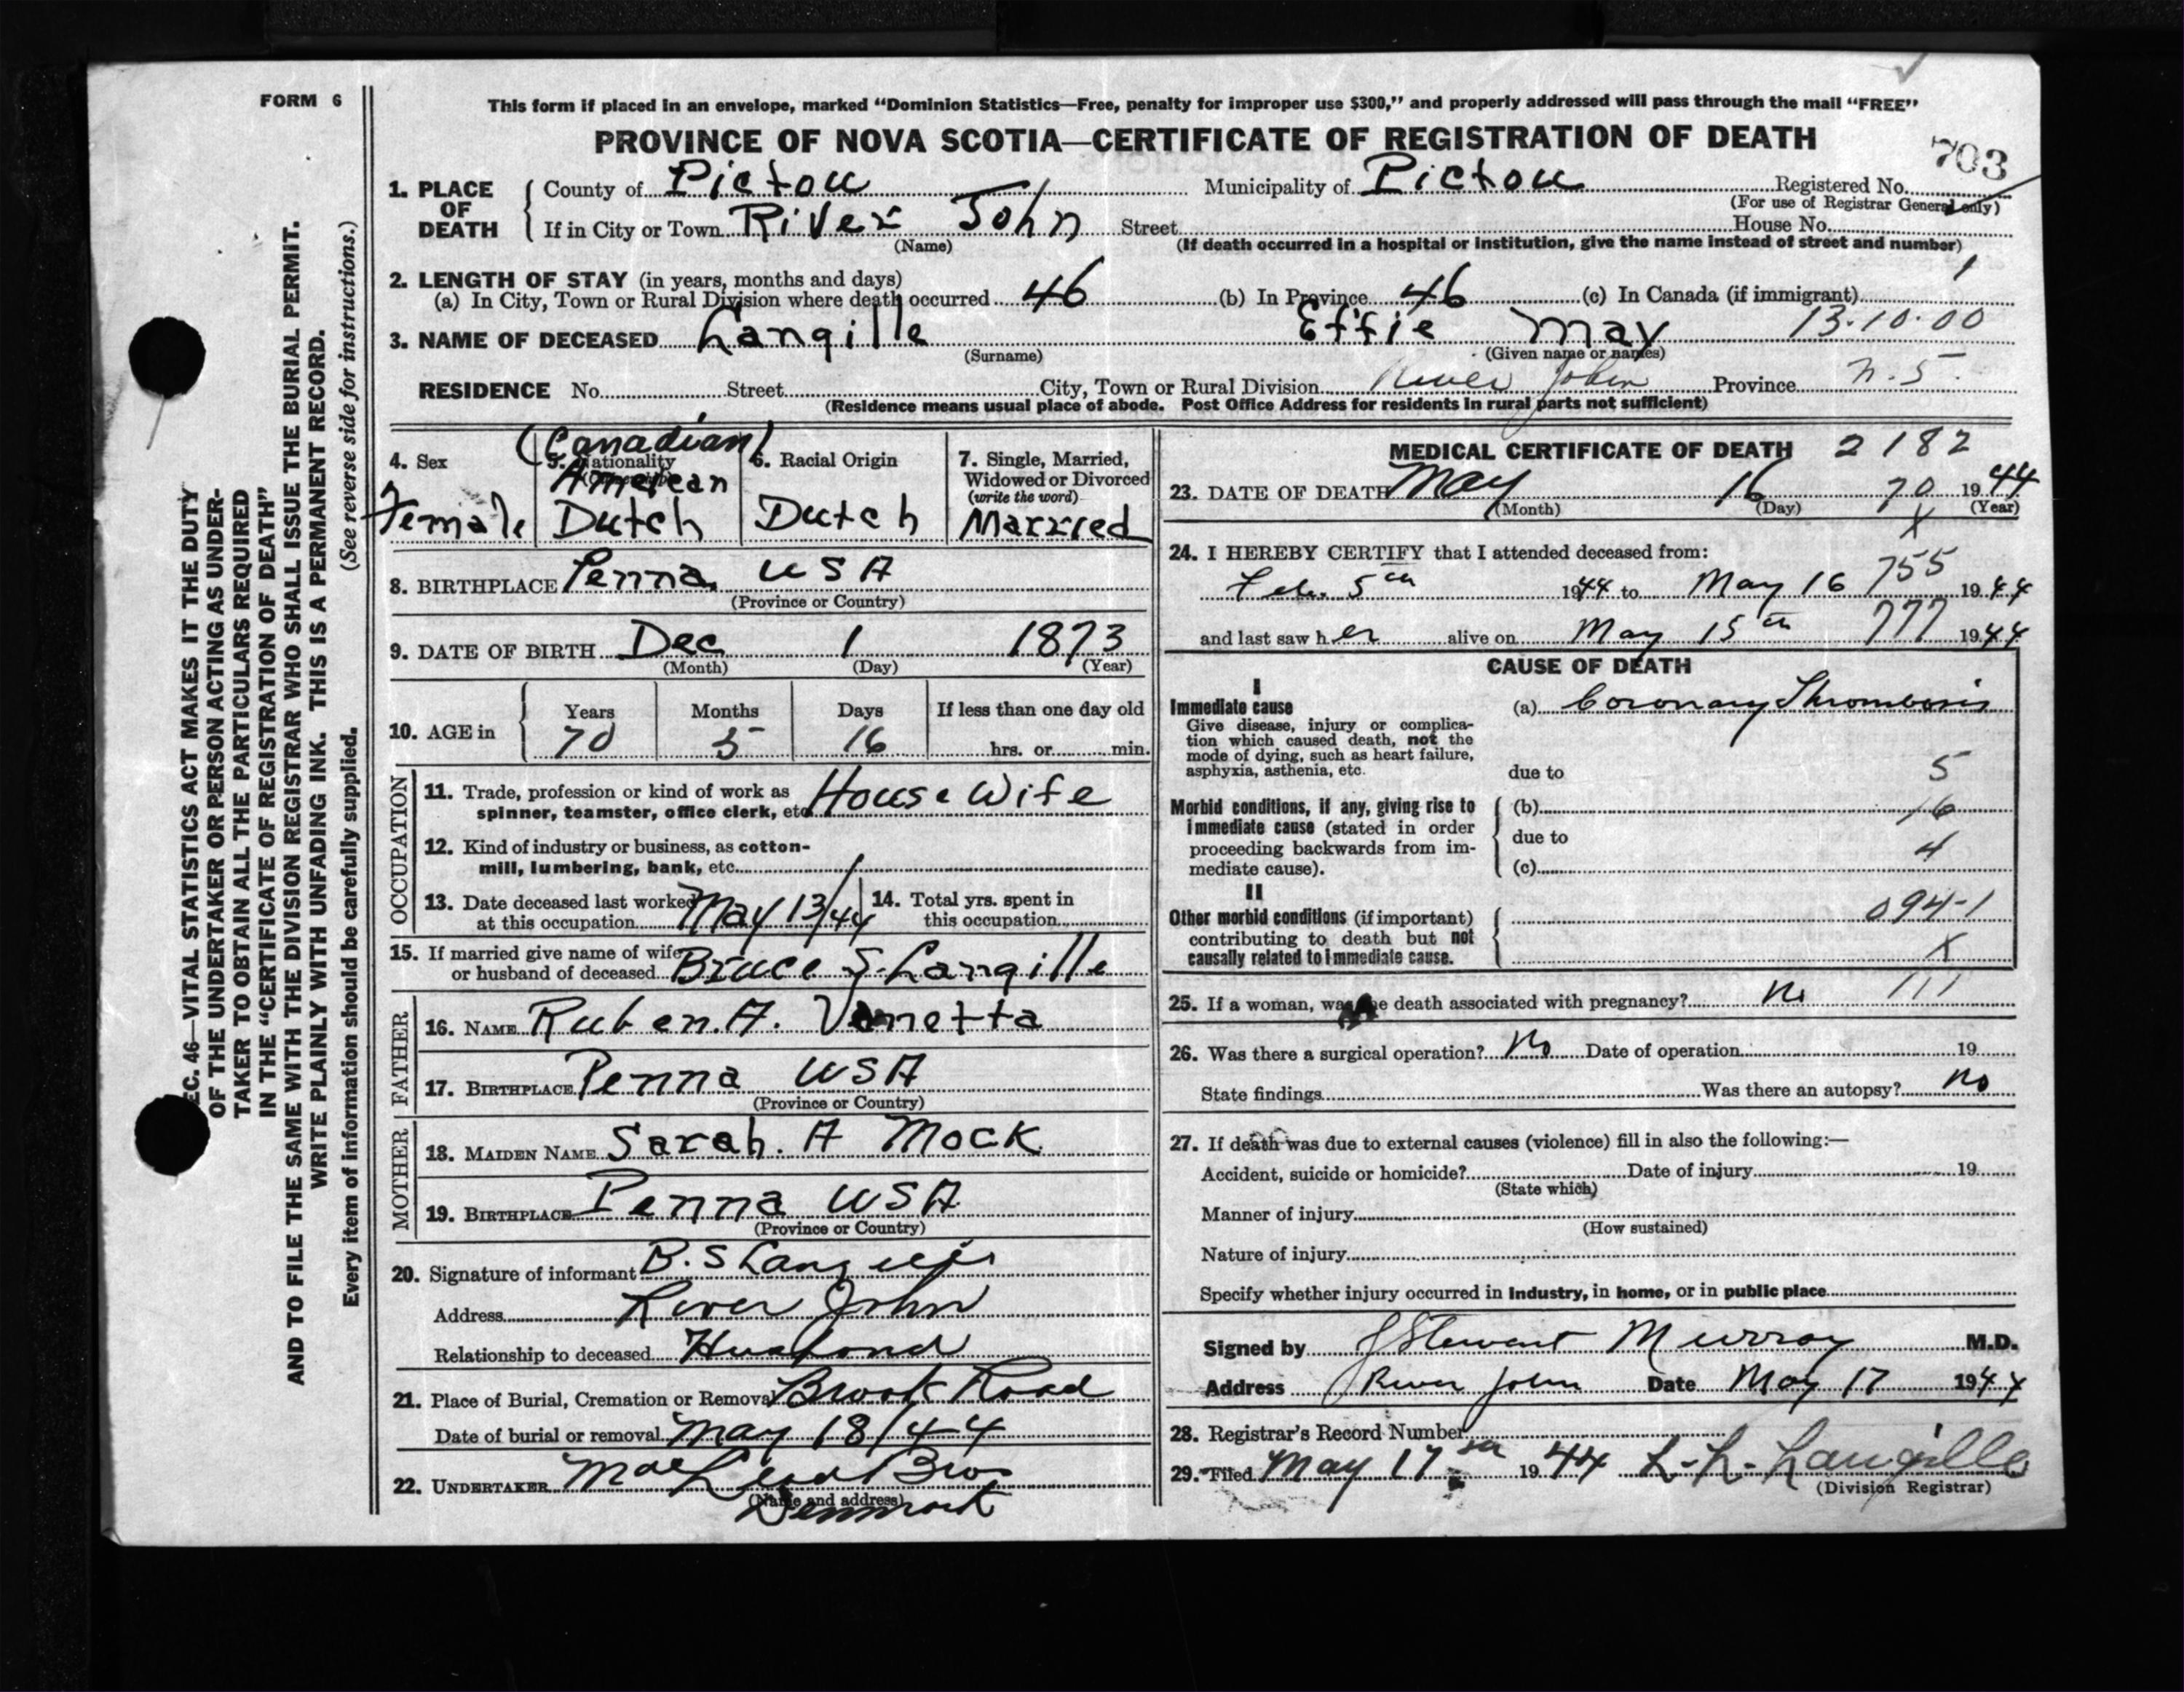 FORM 6
This form if placed in an envelope, marked “Dominion Statistics—Free, penalty for improper use $300,” and properly addressed will pass through the mail “FREE”
PROVINCE OF NOVA SCOTIA—CERTIFICATE OF REGISTRATION OF DEATH
703
1. PLACE OF DEATH { County of Pictou Municipality of Pictou Registered No.
(For use of Registrar General only)
If in City or Town River John Street House No.
(Name) (If death occurred in a hospital or institution, give the name instead of street and number)
2. LENGTH OF STAY (in years, months and days) 1
(a) In City, Town or Rural Division where death occurred 46 (b) In Province 46 (c) In Canada (if immigrant)
3. NAME OF DECEASED Langille Effie May 13·10·00
(Surname) (Given name or names)
RESIDENCE No. Street City, Town or Rural Division River John Province N.S.
(Residence means usual place of abode. Post Office Address for residents in rural parts not sufficient)
4. Sex Female
5. Nationality (Canadian) American Dutch
6. Racial Origin Dutch
7. Single, Married, Widowed or Divorced (write the word) Married
8. BIRTHPLACE Penna. USA
(Province or Country)
9. DATE OF BIRTH Dec 1 1873
(Month) (Day) (Year)
10. AGE in { Years Months Days If less than one day old
70 5 16 hrs. or min.
OCCUPATION
11. Trade, profession or kind of work as
spinner, teamster, office clerk, etc. House Wife
12. Kind of industry or business, as cotton-
mill, lumbering, bank, etc.
13. Date deceased last worked at this occupation May 13/44
14. Total yrs. spent in this occupation
15. If married give name of wife
or husband of deceased Bruce S. Langille
FATHER
16. NAME Ruben. A.
17. BIRTHPLACE Penna USA
(Province or Country)
MOTHER
18. MAIDEN NAME Sarah. A Mock
19. BIRTHPLACE Penna USA
(Province or Country)
20. Signature of informant B. S Langille
Address River John
Relationship to deceased Husband
21. Place of Burial, Cremation or Removal Brook Road
Date of burial or removal May 18/44
22. UNDERTAKER MacLeod Bros
(Name and address)
Denmark
MEDICAL CERTIFICATE OF DEATH 2182
23. DATE OF DEATH May 16 70 1944
(Month) (Day) (Year)
X
24. I HEREBY CERTIFY that I attended deceased from:
Feb. 5th 1944 to May 16 755 1944
and last saw her alive on May 15th 777 1944
CAUSE OF DEATH
I
Immediate cause (a) Coronary Thrombosis
Give disease, injury or complica-
tion which caused death, not the
mode of dying, such as heart failure,
asphyxia, asthenia, etc.
due to 5
Morbid conditions, if any, giving rise to { (b) 16
immediate cause (stated in order due to
proceeding backwards from im- 4
mediate cause). (c)
II
Other morbid conditions (if important) { 094-1
contributing to death but not
causally related to immediate cause. X
25. If a woman, was the death associated with pregnancy? No 111
26. Was there a surgical operation? No Date of operation 19
State findings Was there an autopsy? No
27. If death was due to external causes (violence) fill in also the following:—
Accident, suicide or homicide? Date of injury 19
(State which)
Manner of injury
(How sustained)
Nature of injury
Specify whether injury occurred in industry, in home, or in public place
Signed by J Stewart Murray M.D.
Address River John Date May 17 1944
28. Registrar's Record Number
29. Filed May 17th 1944 L. L. Langille
(Division Registrar)
EC. 46—VITAL STATISTICS ACT MAKES IT THE DUTY
OF THE UNDERTAKER OR PERSON ACTING AS UNDER-
TAKER TO OBTAIN ALL THE PARTICULARS REQUIRED
IN THE “CERTIFICATE OF REGISTRATION OF DEATH”
AND TO FILE THE SAME WITH THE DIVISION REGISTRAR WHO SHALL ISSUE THE BURIAL PERMIT.
WRITE PLAINLY WITH UNFADING INK. THIS IS A PERMANENT RECORD.
Every item of information should be carefully supplied. (See reverse side for instructions.)